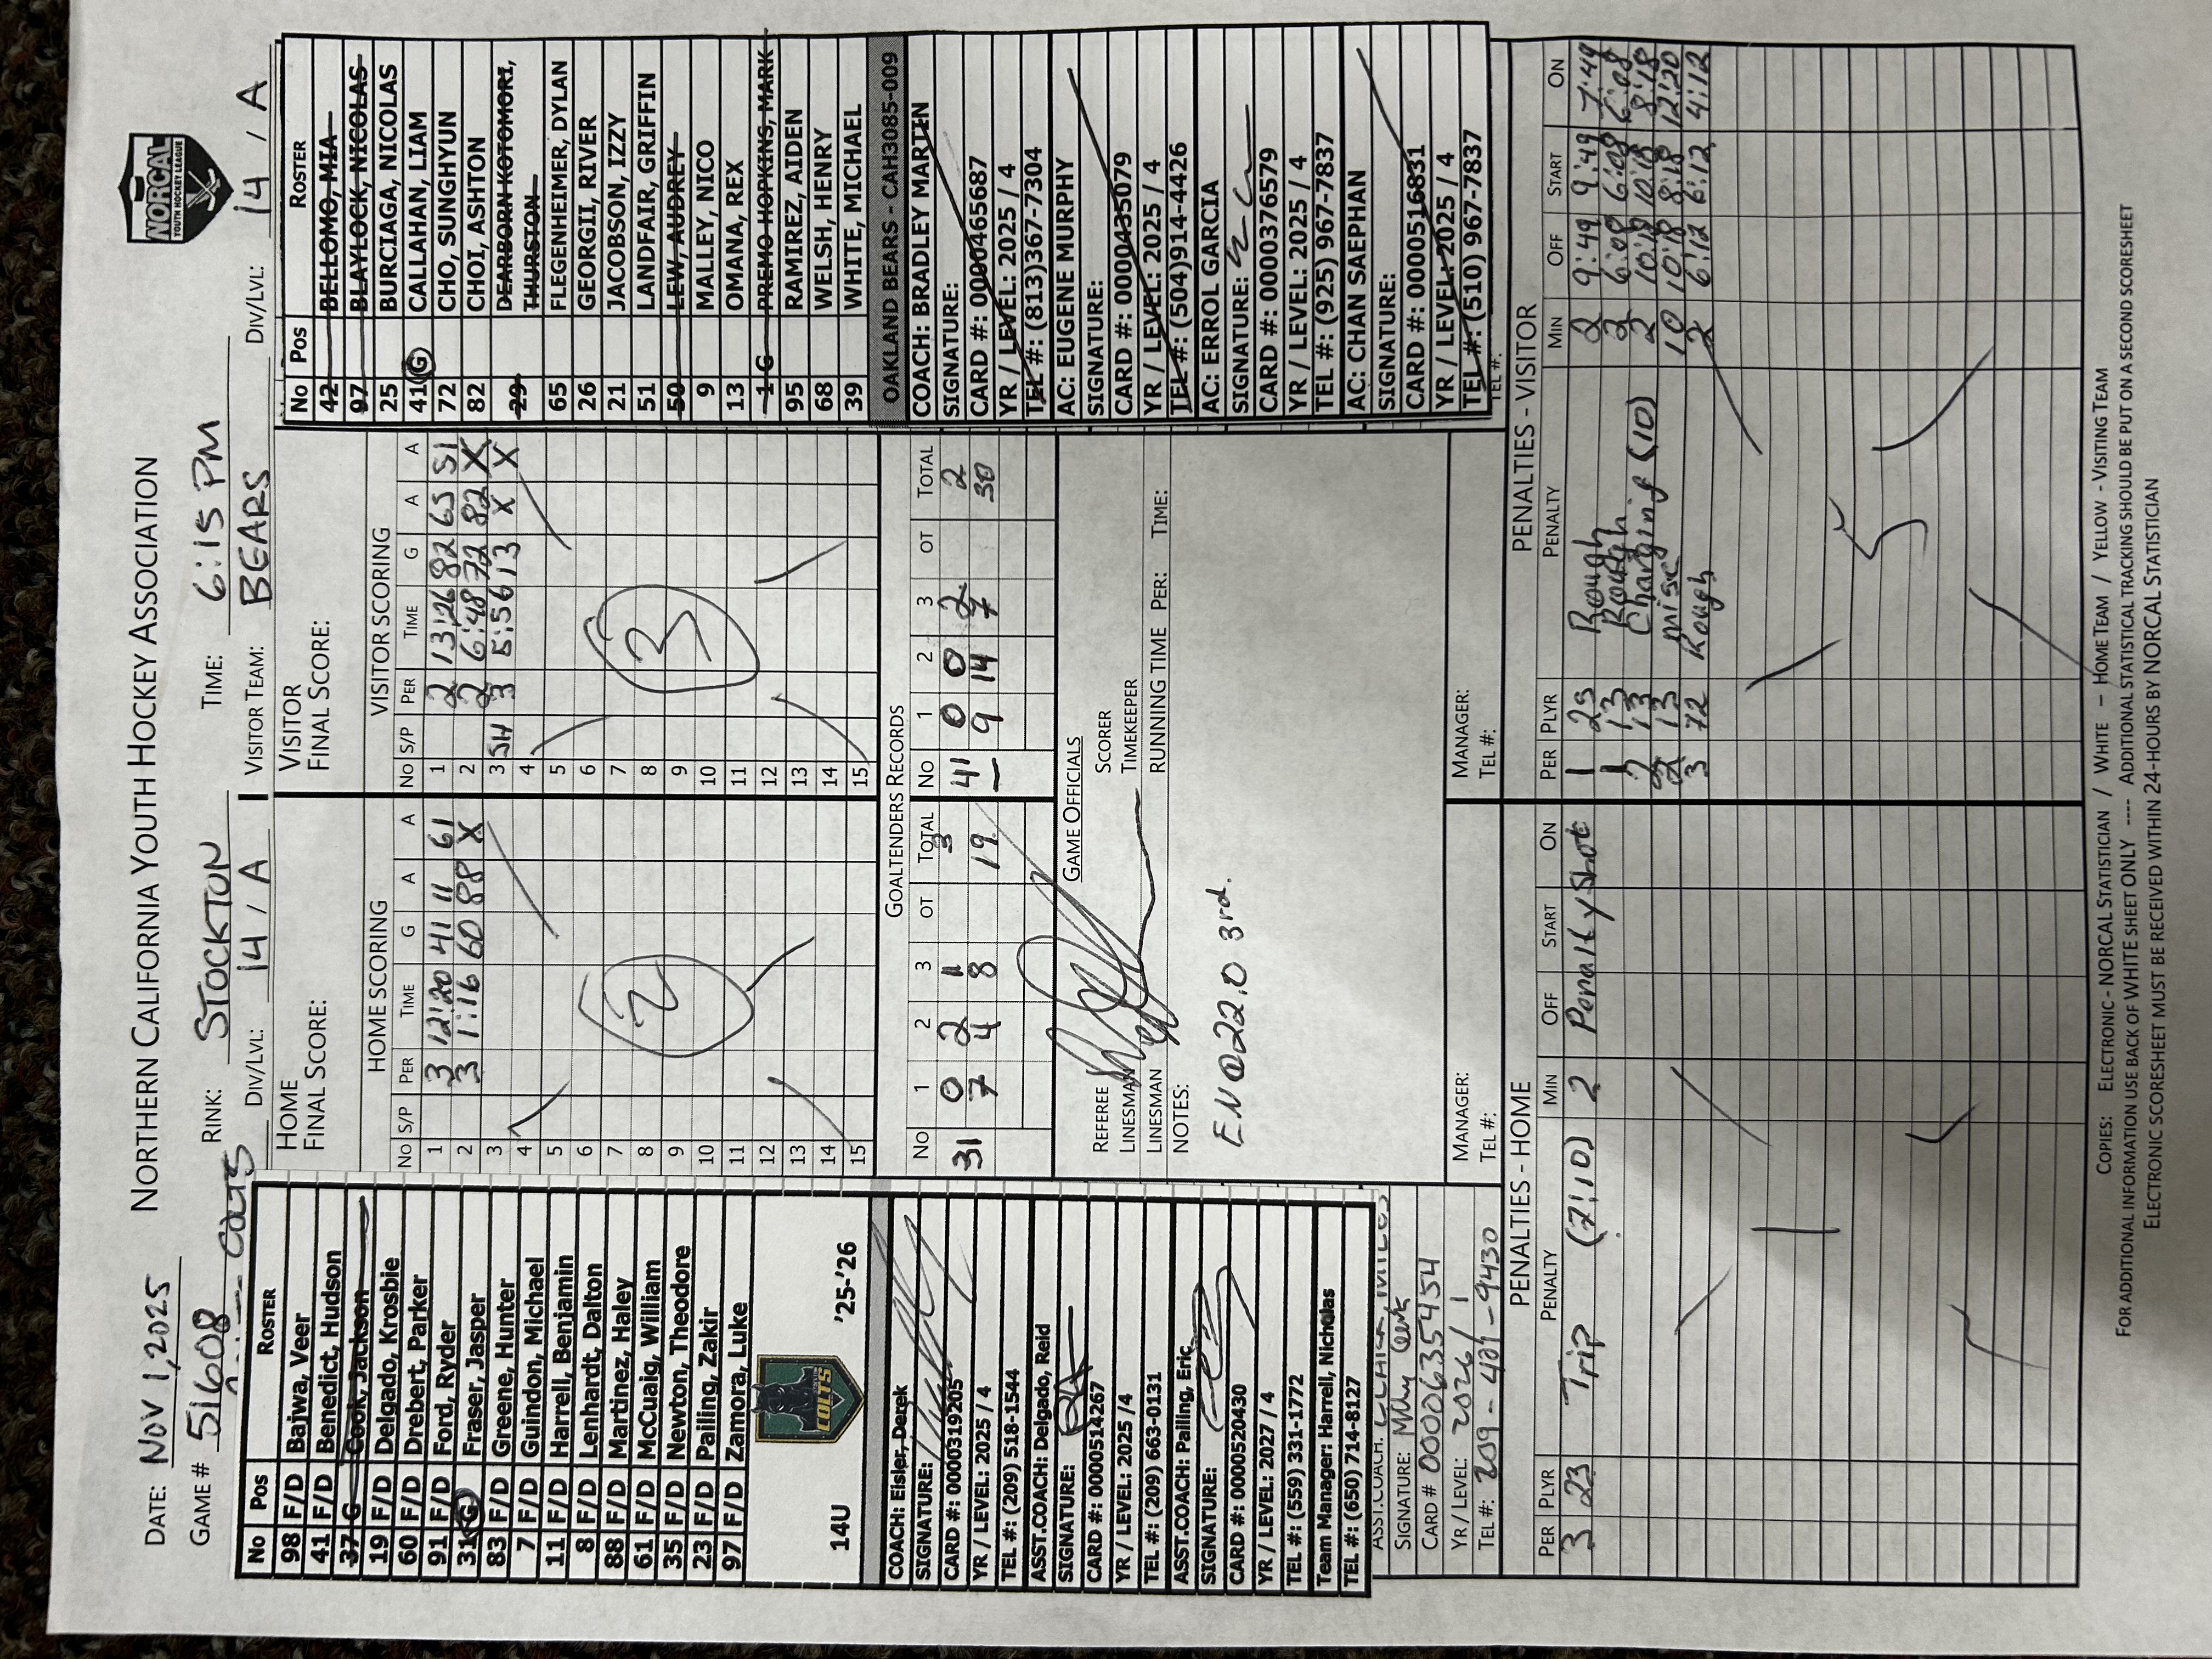 NORTHERN CALIFORNIA YOUTH HOCKEY ASSOCIATION
NORCAL
YOUTH HOCKEY LEAGUE
DATE: NOV 1, 2025 RINK: STOCKTON TIME: 6:15 PM
GAME # 51608 DIV/LVL: 14 / A VISITOR TEAM: BEARS DIV/LVL: 14 / A
COLTS
No Pos ROSTER
98 F/D Bajwa, Veer
41 F/D Benedict, Hudson
37 G Cook, Jackson
19 F/D Delgado, Krosbie
60 F/D Drebert, Parker
91 F/D Ford, Ryder
31 G Fraser, Jasper
83 F/D Greene, Hunter
7 F/D Guindon, Michael
11 F/D Harrell, Benjamin
8 F/D Lenhardt, Dalton
88 F/D Martinez, Haley
61 F/D McCuaig, William
35 F/D Newton, Theodore
23 F/D Pailing, Zakir
97 F/D Zamora, Luke
14U COLTS '25-'26
COACH: Eisler, Derek
SIGNATURE:
CARD #: 0000319205
YR / LEVEL: 2025 / 4
TEL #: (209) 518-1544
ASST.COACH: Delgado, Reid
SIGNATURE:
CARD #: 0000514267
YR / LEVEL: 2025 / 4
TEL #: (209) 663-0131
ASST.COACH: Pailing, Eric
SIGNATURE:
CARD #: 0000520430
YR / LEVEL: 2027 / 4
TEL #: (559) 331-1772
Team Manager: Harrell, Nicholas
TEL #: (650) 714-8127
ASST.COACH:
SIGNATURE:
CARD # 0000635454
YR / LEVEL: 2026 / 1
TEL #: 209-481-9430
HOME
FINAL SCORE:
HOME SCORING
No S/P PER TIME G A A
1 3 12:20 41 11 61
2 3 1:16 60 88 X
3
4
5
6
7
8
9
10
11
12
13
14
15
2
VISITOR
FINAL SCORE:
VISITOR SCORING
No S/P PER TIME G A A
1 2 13:26 82 65 51
2 2 6:48 72 82 X
3 SH 3 5:56 13 X X
4
5
6
7
8
9
10
11
12
13
14
15
3
No Pos ROSTER
42 BELLOMO, MIA
97 BLAYLOCK, NICOLAS
25 BURCIAGA, NICOLAS
41 G CALLAHAN, LIAM
72 CHO, SUNGHYUN
82 CHOI, ASHTON
29 DEARBORN KOTOMORI,
THURSTON
65 FLEGENHEIMER, DYLAN
26 GEORGII, RIVER
21 JACOBSON, IZZY
51 LANDFAIR, GRIFFIN
50 LEW, AUDREY
9 MALLEY, NICO
13 OMANA, REX
1 G PREMO HOPKINS, MARK
95 RAMIREZ, AIDEN
68 WELSH, HENRY
39 WHITE, MICHAEL
OAKLAND BEARS - CAH3085-009
COACH: BRADLEY MARTIN
SIGNATURE:
CARD #: 0000465687
YR / LEVEL: 2025 / 4
TEL #: (813)367-7304
AC: EUGENE MURPHY
SIGNATURE:
CARD #: 0000435079
YR / LEVEL: 2025 / 4
TEL #: (504)914-4426
AC: ERROL GARCIA
SIGNATURE:
CARD #: 0000376579
YR / LEVEL: 2025 / 4
TEL #: (925) 967-7837
AC: CHAN SAEPHAN
SIGNATURE:
CARD #: 0000516831
YR / LEVEL: 2025 / 4
TEL #: (510) 967-7837
TEL #:
GOALTENDERS RECORDS
No 1 2 3 OT TOTAL No 1 2 3 OT TOTAL
31 0 2 1 3 41 0 0 2 2
7 4 8 19 — 9 14 7 30
GAME OFFICIALS
REFEREE SCORER
LINESMAN TIMEKEEPER
LINESMAN RUNNING TIME PER: TIME:
NOTES:
EN @ 22.0 3rd.
MANAGER: MANAGER:
TEL #: TEL #:
PENALTIES - HOME
PER PLYR PENALTY MIN OFF START ON
3 23 Trip (7:10) 2 Penalty Shot
1
PENALTIES - VISITOR
PER PLYR PENALTY MIN OFF START ON
1 25 Rough 2 9:49 9:49 7:49
1 13 Rough 2 6:08 6:08
2 13 Charging (10) 2 10:18 10:18 8:18
2 13 misc 10 10:18 8:18 12:20
3 72 Rough 2 6:12 6:12 4:12
5
COPIES: ELECTRONIC - NORCAL STATISTICIAN / WHITE – HOME TEAM / YELLOW - VISITING TEAM
FOR ADDITIONAL INFORMATION USE BACK OF WHITE SHEET ONLY ---- ADDITIONAL STATISTICAL TRACKING SHOULD BE PUT ON A SECOND SCORESHEET
ELECTRONIC SCORESHEET MUST BE RECEIVED WITHIN 24-HOURS BY NORCAL STATISTICIAN